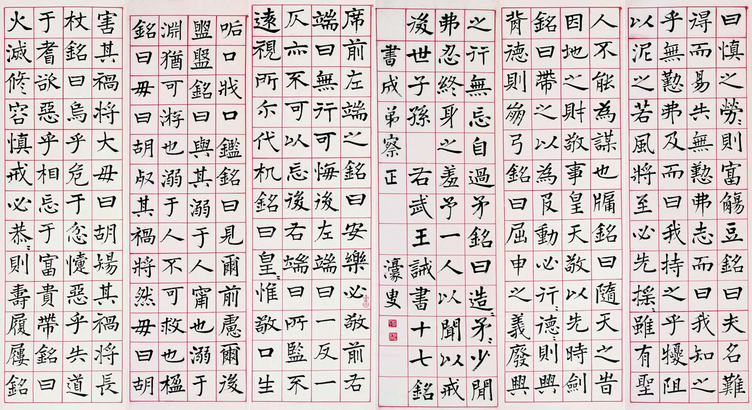 席前左端之銘曰安樂必敬前右
端曰無行可悔後左端曰一反一
仄亦不可以忘後右端曰所監不
遠視所尒代机銘曰皇〻惟敬口生
㖃口戕口鑑銘曰見爾前慮爾後
盥盤銘曰與其溺于人甯也溺于
淵猶可游也溺于人不可救也楹
銘曰毋曰胡㱚其禍將然毋曰胡
害其禍將大毋曰胡場其禍將長
杖銘曰烏乎危于忿懥惡乎失道
于耆欲惡乎相忘于富貴帶銘曰
火滅修容慎戒必恭〻則壽履屨銘
曰慎之勞〻則富觴豆銘曰夫名難
得而易失無懃弗志而曰我知之
乎無懃弗及而曰我持之乎擾阻
以泥之若風將至必先搖〻雖有聖
人不能為謀也牖銘曰隨天之旹
因地之財敬事皇天敬以先時劍
銘曰帶之以為㞋動必行〻德〻則興
背德則崩弓銘曰屈申之義廢興
之行無忘自過矛銘曰造〻矛〻少閒
弗忍終身之羞予一人以聞以戒
後世子孫 右武王誡書十七銘
書成弟察正 濠叟